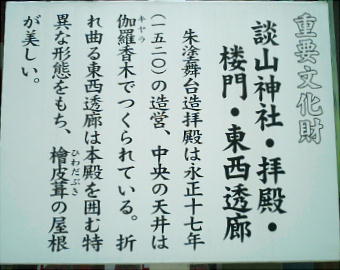 重要文化財
談山神社・拝殿・
楼門・東西透廊
朱塗舞台造拝殿は永正十七年
(一五二〇)の造営、中央の天井は
伽羅香木でつくられている。折
キャラ
れ曲る東西透廊は本殿を囲む特
異な形態をもち、檜皮葺の屋根
ひわだぶき
が美しい。